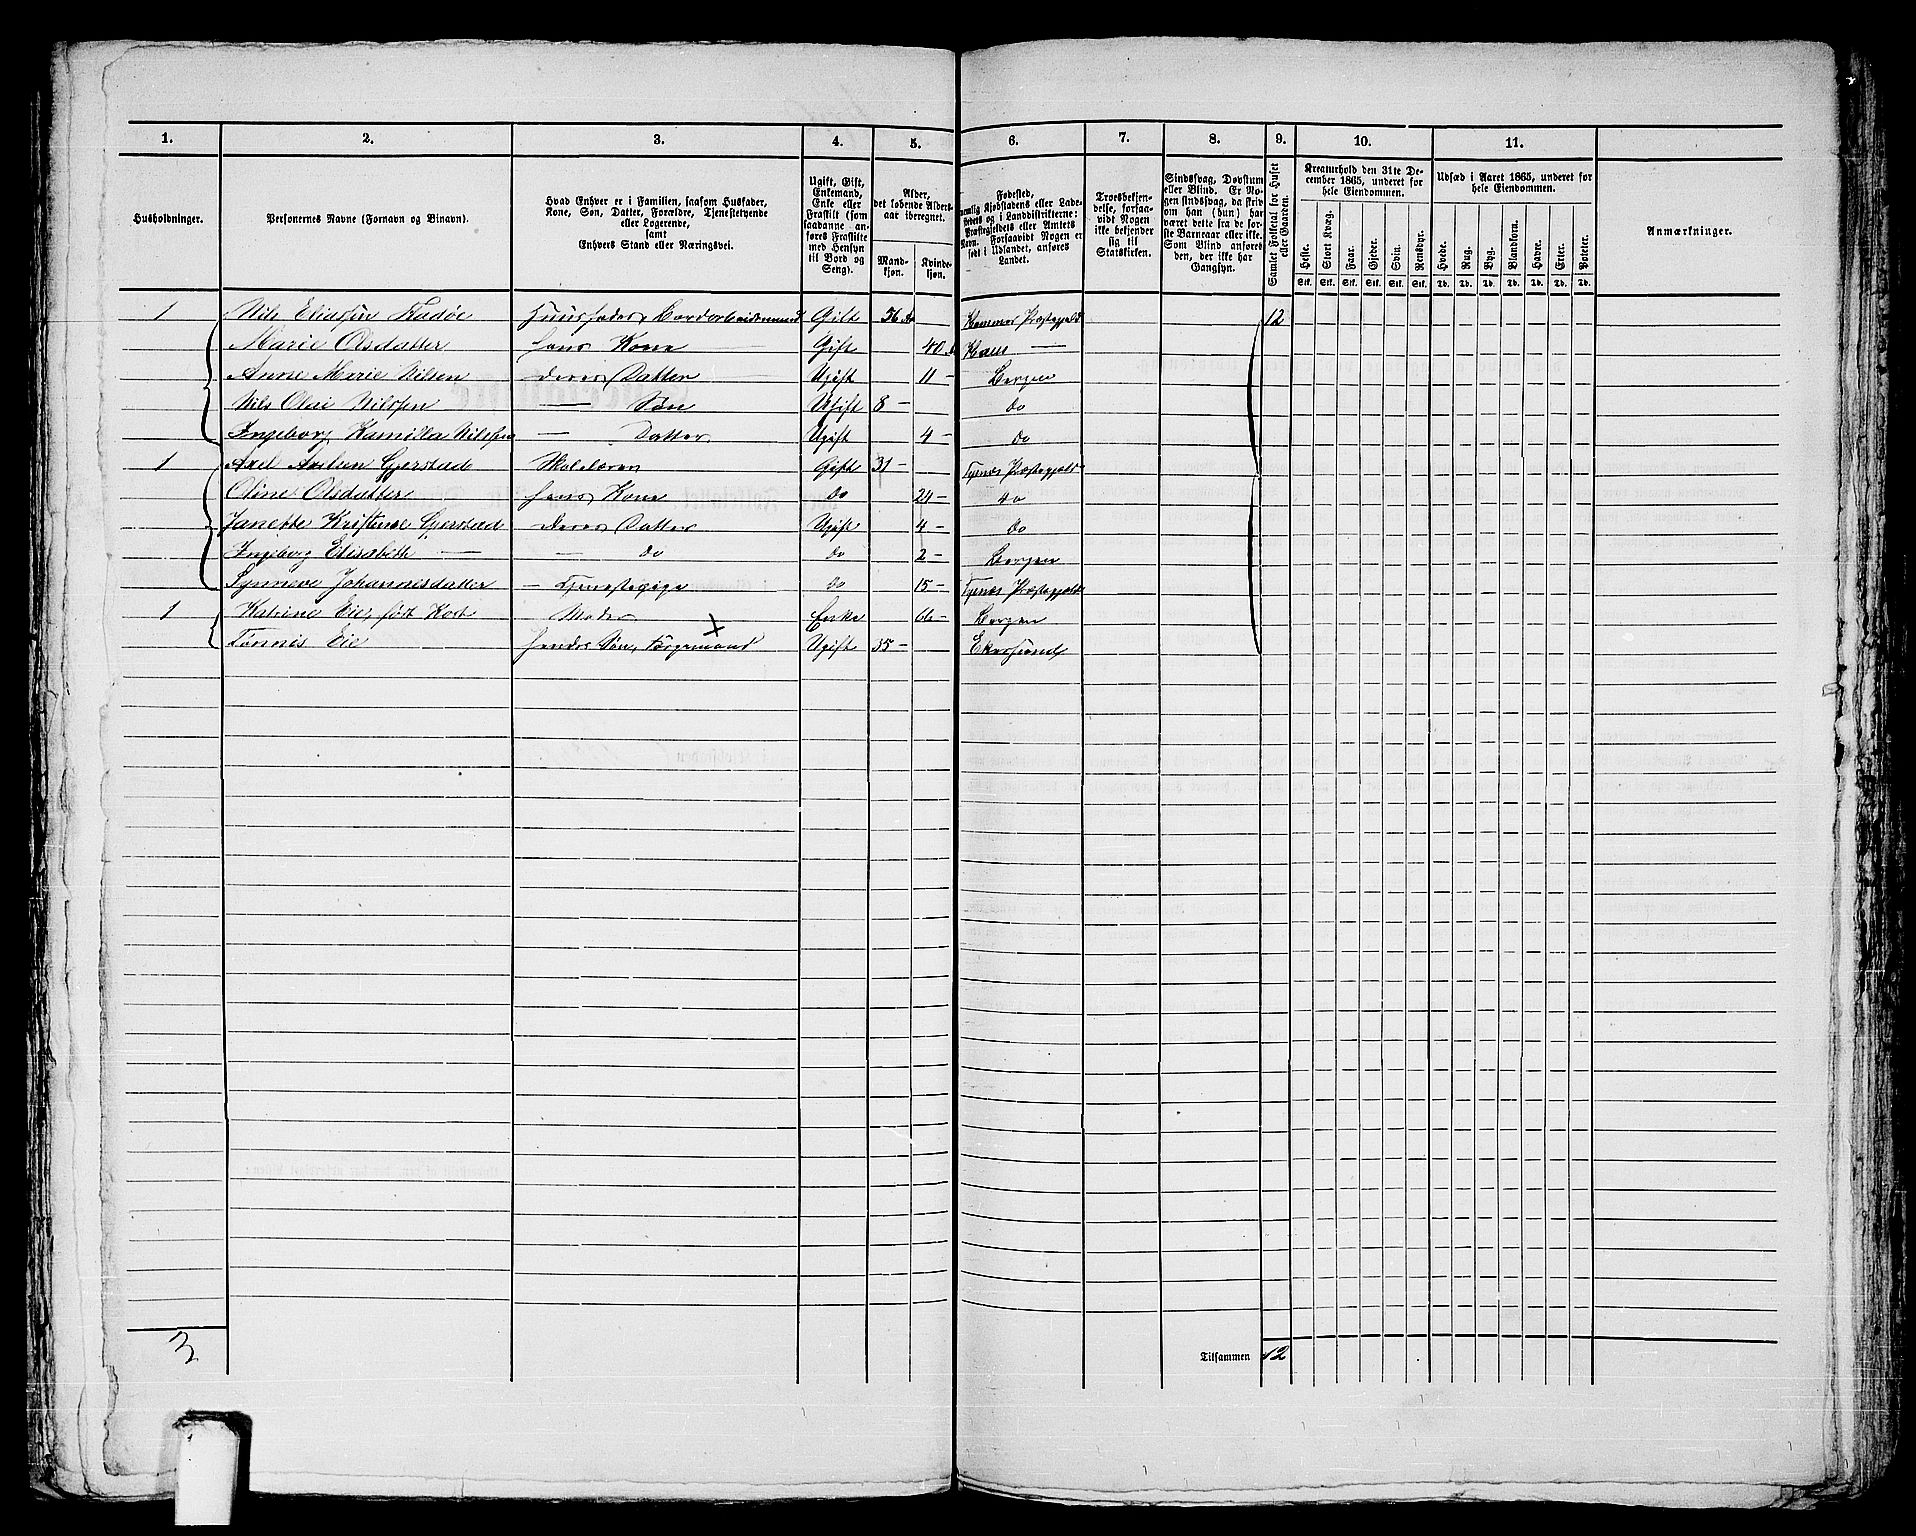 1. 2. 3. 4. 5. 6. 7. 8. 9. 10. 11.
Husholdninger.
Personernes Navne (Fornavn og Binavn).
Hvad Enhver er i Familien, saasom Husfader,
Kone, Søn, Datter, Forældre, Tjenestetyende
eller Logerende,
samt
Enhvers Stand eller Næringsvei.
Ugift, Gift,
Enkemand,
Enke eller
Fraskilt (som
saadanne an-
føres Fraskilte
med Hensyn
til Bord og
Seng).
Alder,
det løbende Alders-
aar iberegnet.
Mand-
kjøn.
Kvinde-
kjøn.
Fødested,
nemlig Kjøbstadens eller Lade-
stedets og i Landdistrikterne:
Præstegjeldets eller Amtets
Navn. Forsaavidt Nogen er
født i Udlandet, anføres
Landet.
Troesbekjen-
delse, forsaa-
vidt Nogen
ikke bekjender
sig til
Statskirken.
Sindssvag, Døvstum
eller Blind. Er No-
gen sindssvag, da skriv
om han (hun) har
været dette fra de før-
ste Barneaar eller ikke.
Som Blind anføres
den, der ikke har
Gangsyn.
Samlet Folketal for Huset
eller Gaarden.
Kreaturhold den 31te De-
cember 1865, underet for
hele Eiendommen.
Heste. Stort Kvæg. Faar. Gjeder. Svin. Rensdyr.
Stk. Stk. Stk. Stk. Stk. Stk.
Udsæd i Aaret 1865, underet for
hele Eiendommen.
Hvede. Rug. Byg. Blandkorn. Havre. Erter. Poteter.
Td. Td. Td. Td. Td. Td. Td.
Anmærkninger.
1 Nils Eliassen Radøe Huusfader, Gift 56 Aar Hammer Præstegjeld 12
Marie Olsdatter hans Kone Gift 40 Haus —
Anne Marie Nilsen deres Datter Ugift 11 — Bergen
Nils Olai Nilssen — Søn Ugift 8 — do
Ingeborg Kamilla Nilssen — Datter Ugift 4 — do
1 Axel Gjerstad Skolelærer Gift 31 — Præstegjeld
Oline Olsdatter hans Kone do 24 — do
Janette Kristense Gjerstad deres Datter Ugift 4 — do
Ingeborg Elisabeth — — do do 2 — Bergen
Synneve Johannesdatter — Tjenestepige do 15 — Præstegjeld
1 Katrine Eie, født Moder Enke Bergen
Tønnes Eie hendes Søn, Ugift 35 — Ekersund
3
Tilsammen 12